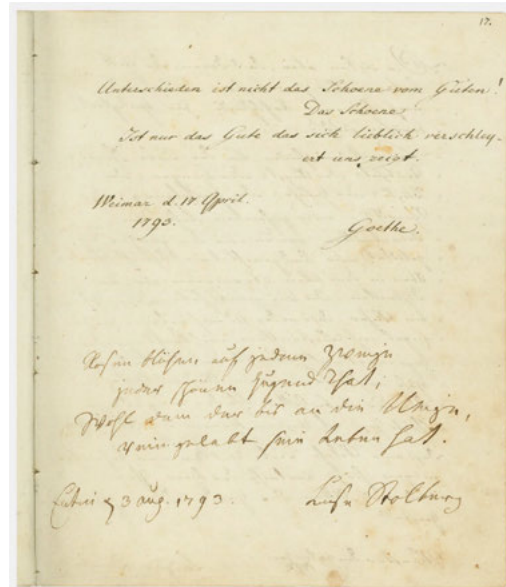 17.
Unterschieden ist nicht das Schoene vom Guten!
Das Schoene
Ist nur das Gute das sich lieblich verschley-
ert uns zeigt.
Weimar d. 17 April.
1793.
Goethe.
Rosen blühen auf jedem Zweige
jeder schönen Jugend That,
Wohl dem der bis an die Neige,
rein gelebt sein Leben hat.
Eutin 3 aug. 1793.
Luise Stolberg